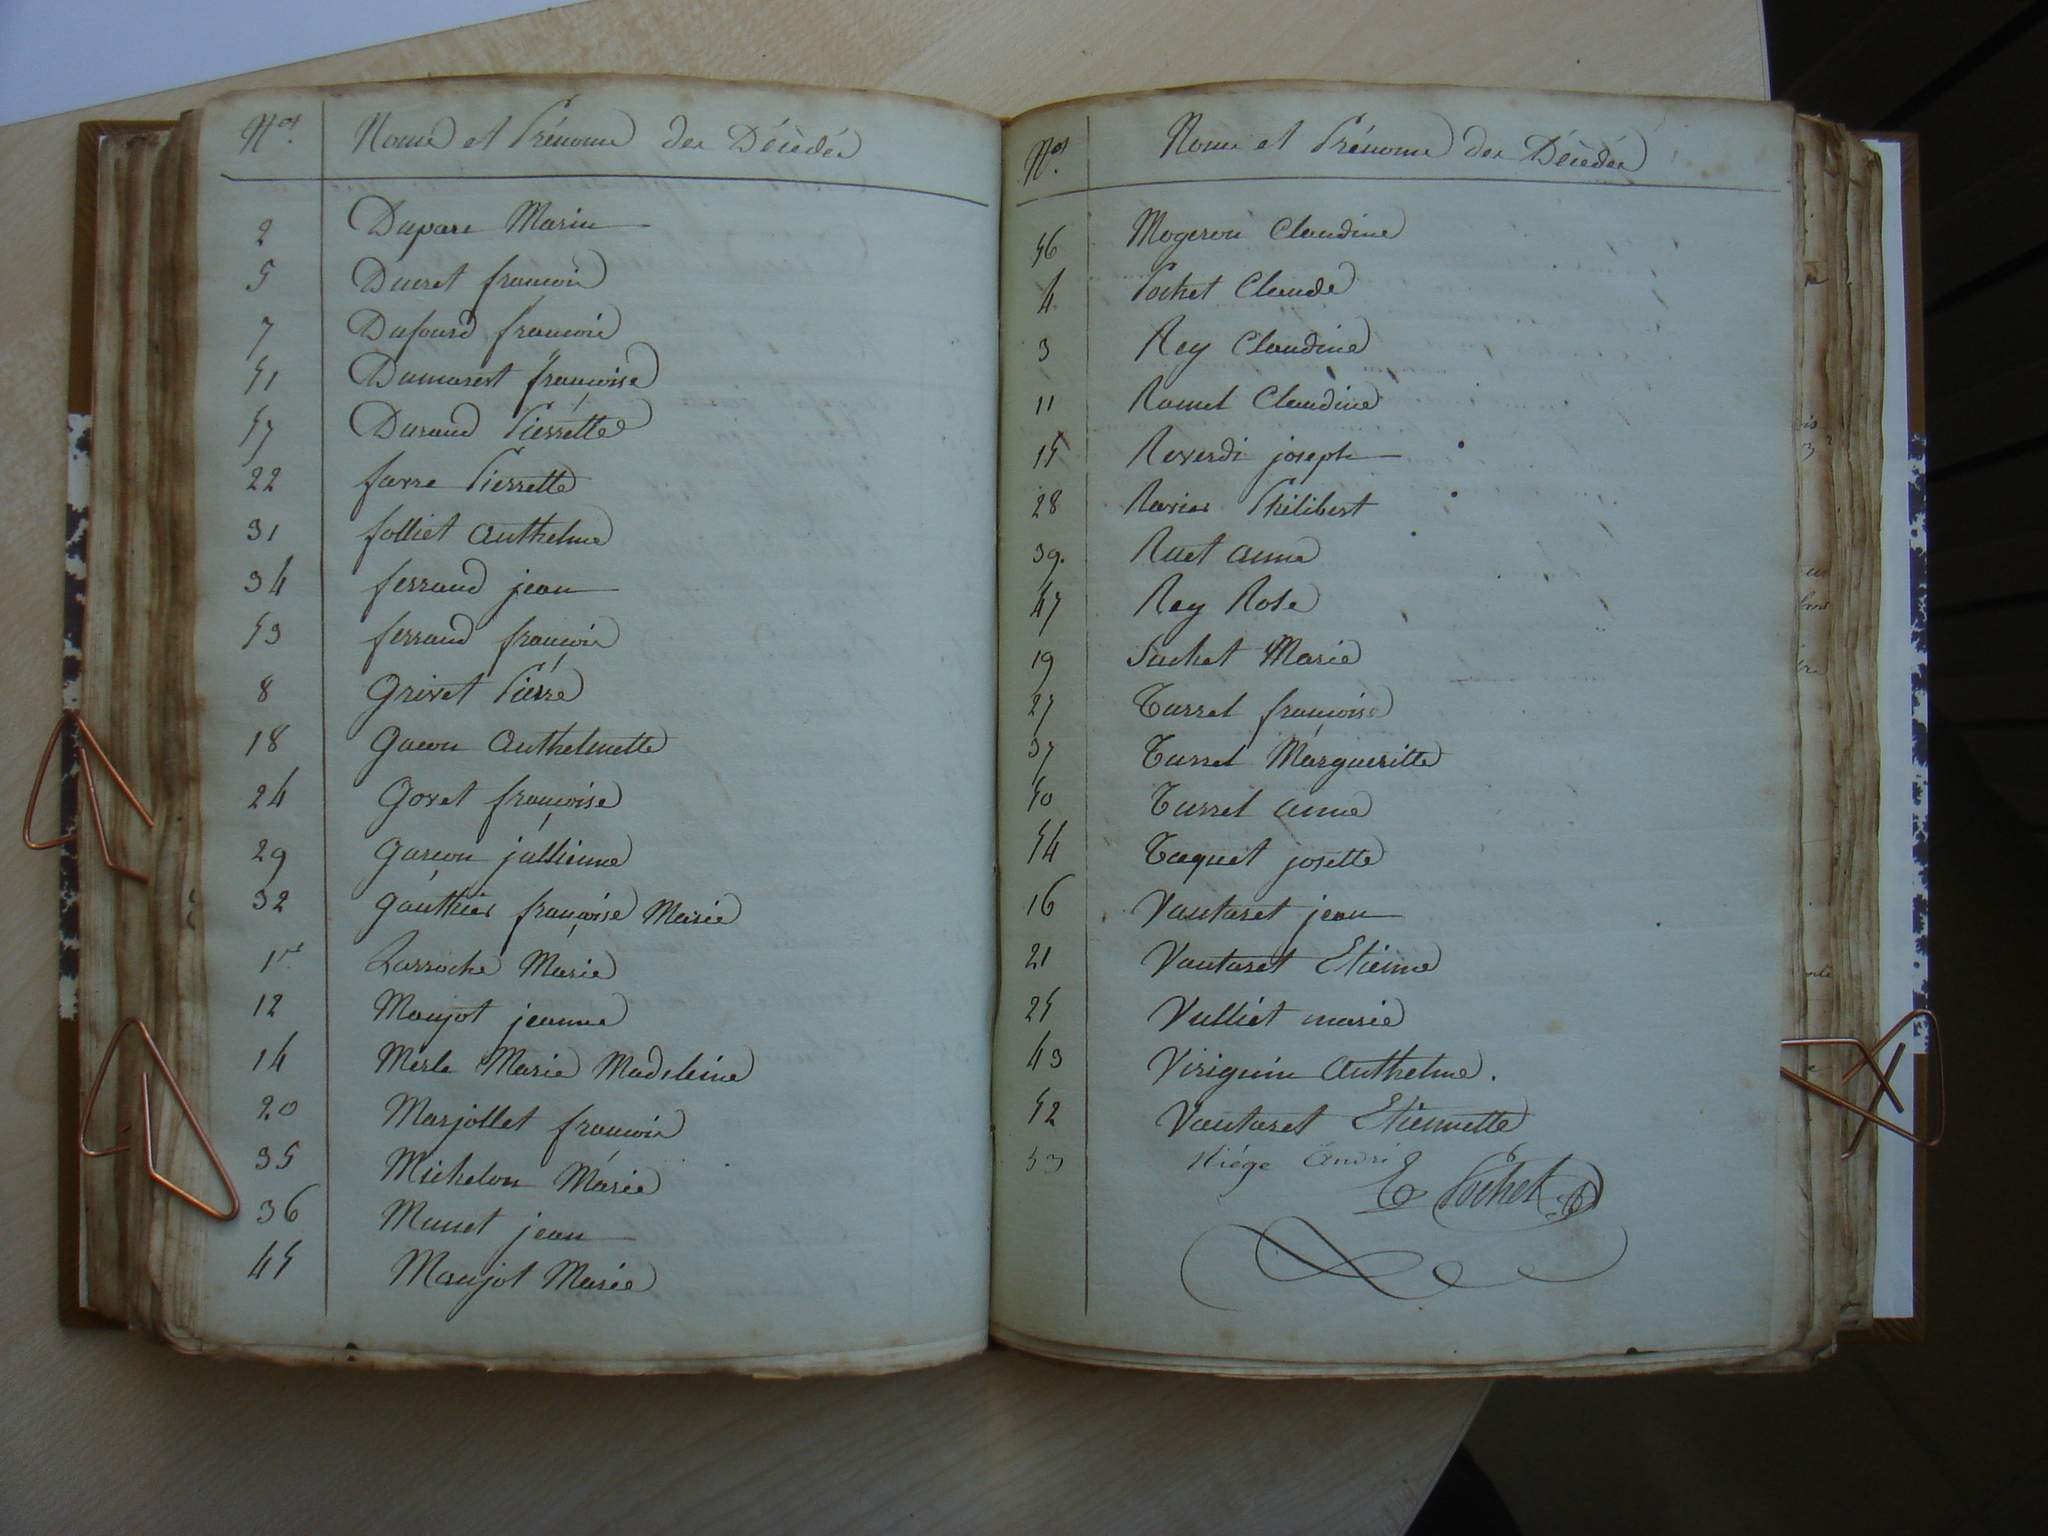 Nos. Noms et Prénoms des Décédés
2 Duparc Marin
5 Ducret françois
7 Dufourd françois
51 Dumarest françoise
57 Durand Pierrette
22 favre Pierrette
31 folliet Anthelme
34 ferrand jean
53 ferrand françois
8 Grivet Pierre
18 Gacon Anthelmette
24 Govet françoise
29 Garcon jullienne
32 Gauthier françoise Marie
1er Larroche Marie
12 Maujot jeanne
14 Merle Marie Madeleine
20 Marjollet françois
35 Michelon Marie
36 Munet jean
45 Maujot Marie
Nos. Noms et Prénoms des Décédés
56 Mogeron Claudine
4 Pochet Claude
3 Rey Claudine
11 Ramel Claudine
15 Reverdi joseph
28 Ravier Philibert
39. Ruet anne
47 Rey Rose
19 Suchet Marie
27 Turrel françoise
37 Turrel Margueritte
50 Turrel anne
54 Taquet josette
16 Vautaret jean
21 Vautaret Etienne
25 Vulliet marie
43 Viriguin Anthelme.
52 Vautaret Etiennette
53 André
E Pochet